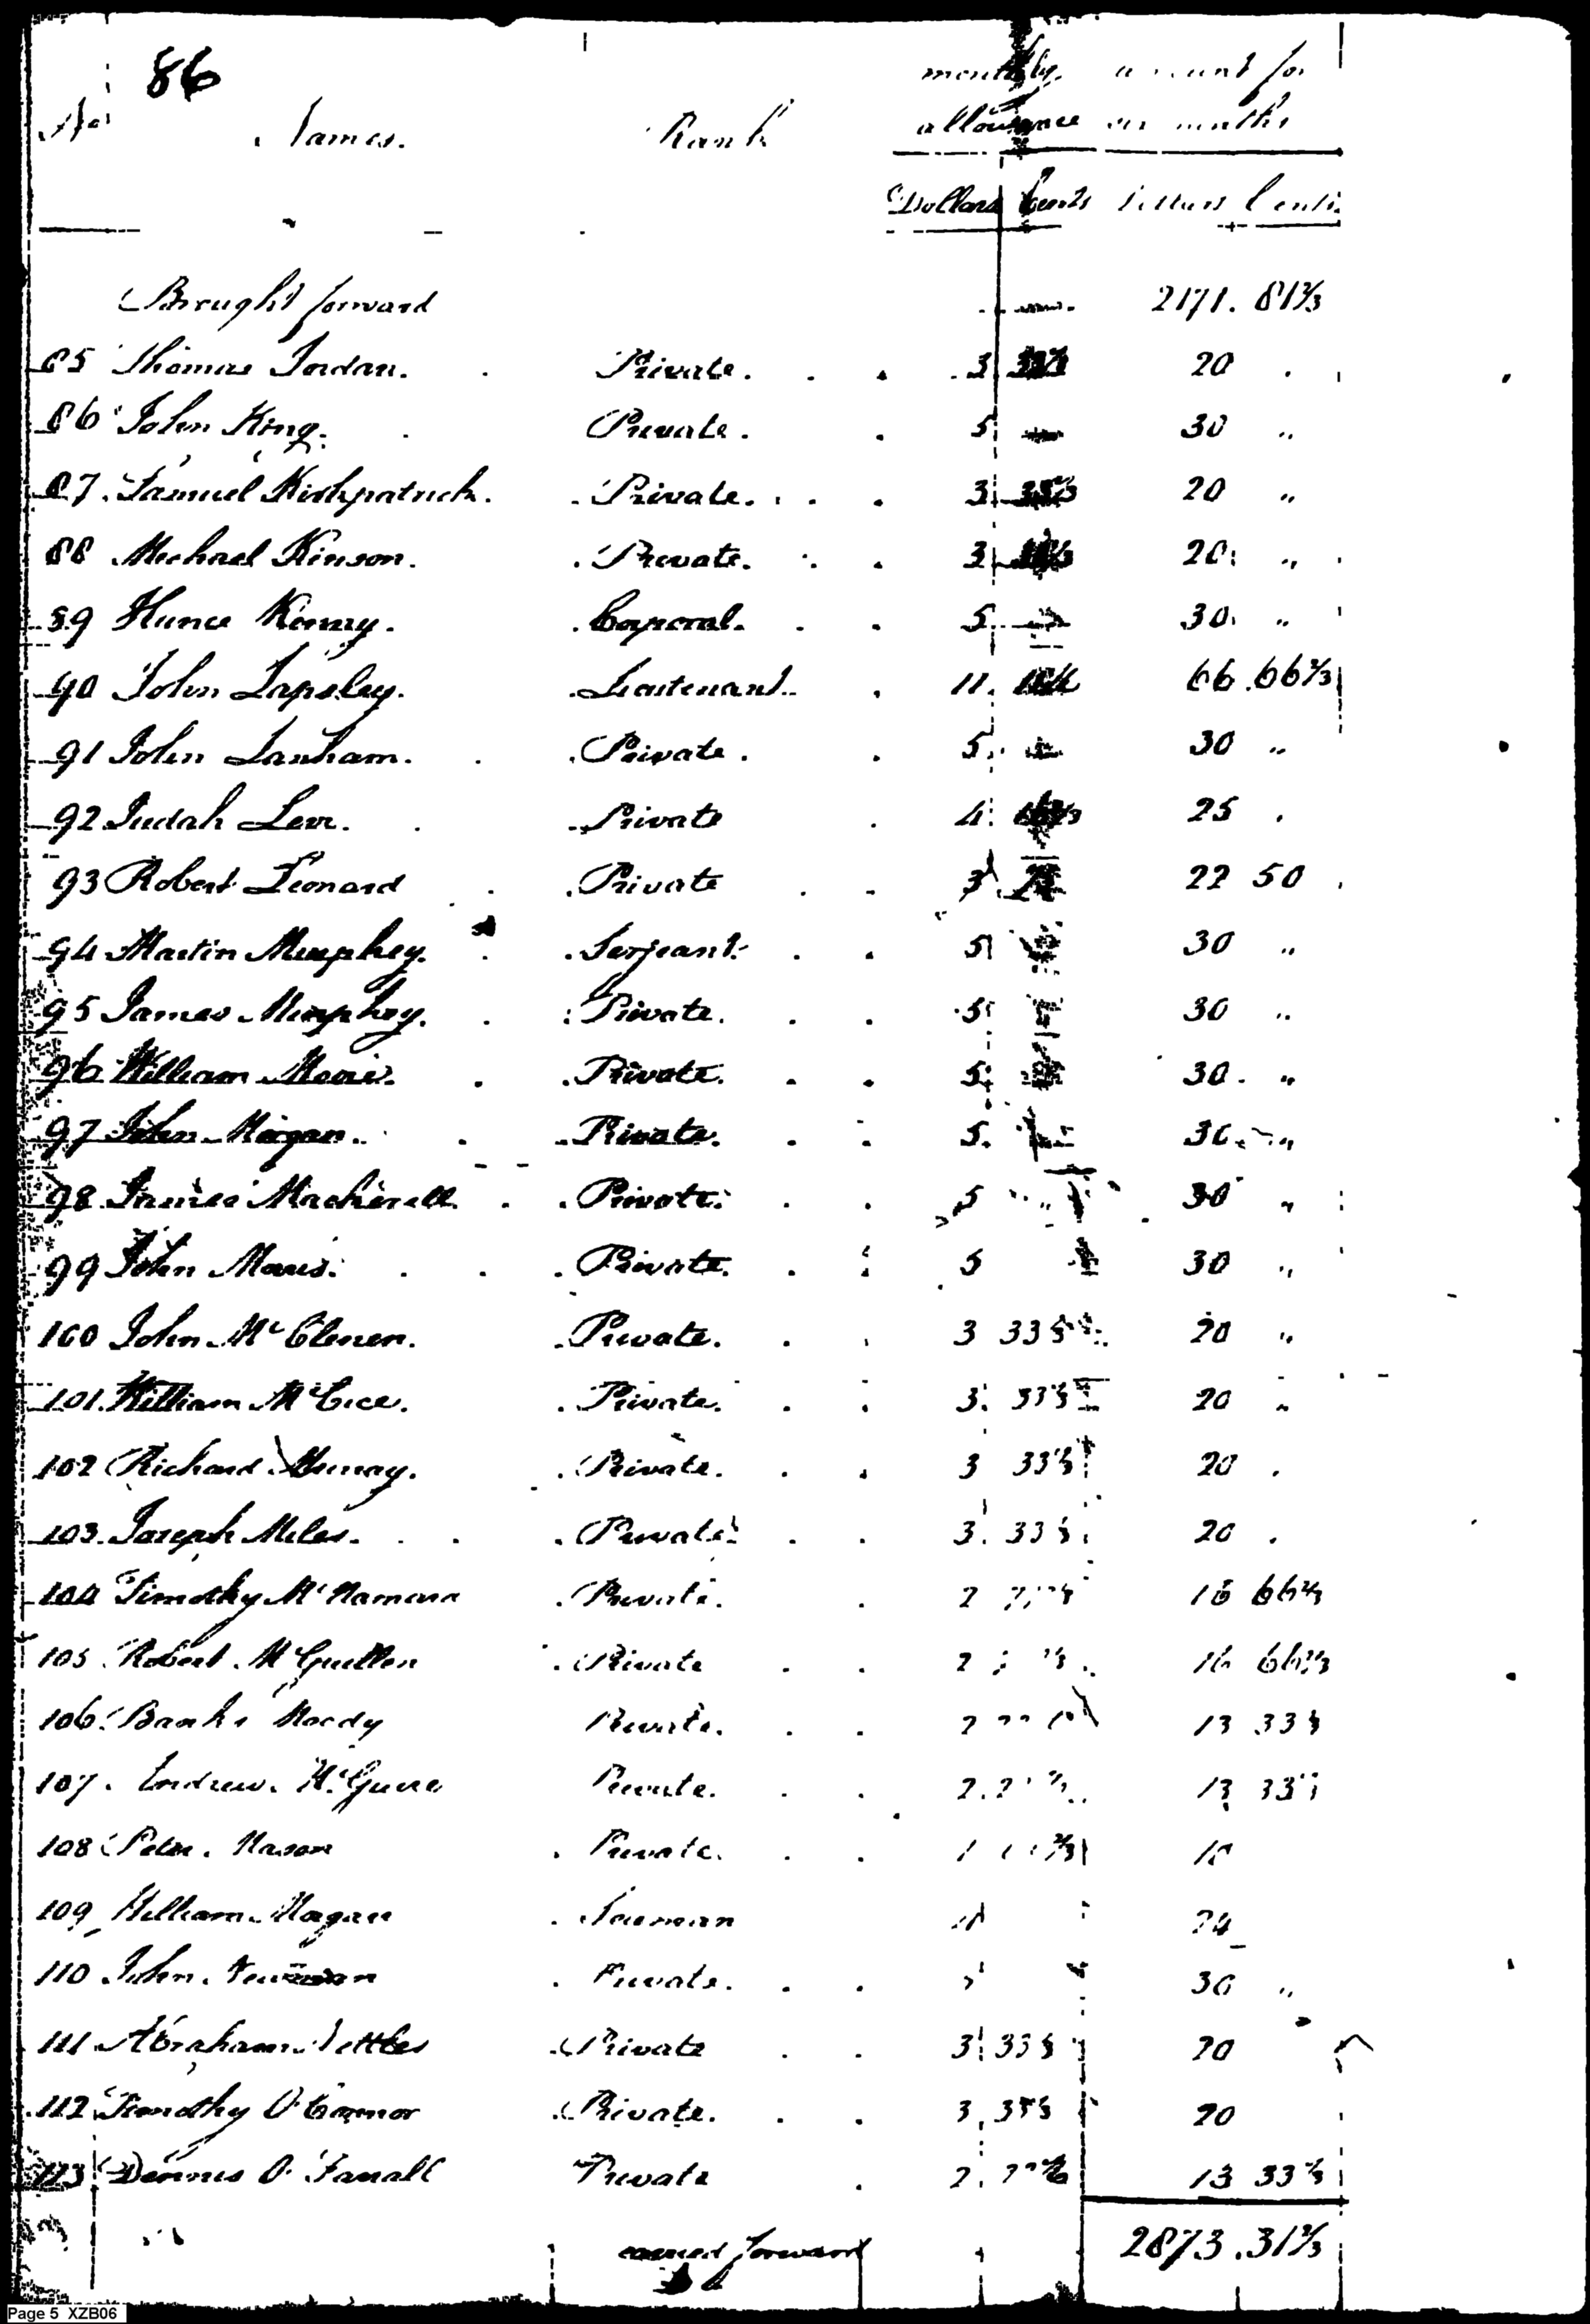 86
No. Names. Rank monthly allowance amount for six months
Dollars Cents Dollars Cents
Brought forward 2171. 81 2/3
85 Thomas Jordan. Private. 3 33 1/3 20
86 John King. Private. 5 30 "
87. Samuel Kirkpatrick. Private. 3 33 1/3 20 "
88 Michael Kinson. Private. 3 20 "
89 Hance Corporal. 5 30 "
90 John Lapsley. Lieutenant. 11. 66.66 2/3
91 John Lanham. Private. 5 30 "
92 Judah Levi. Private 4. 25
93 Robert Leonard Private 3 22 50
94 Martin Murphey. Serjeant. 5 30 "
95 James Murphey. Private. 5 30 "
96 William Private. 5 30 "
97 John Morgan. Private. 5. 30 "
98 James Private. 5 " 30 "
99 John Private. 5 30 "
100 John McClenen. Private. 3 33 1/3 20 "
101. William Private. 3. 33 1/3 20 "
102 Richard Murray. Private. 3 33 1/3 20
103. Joseph Miles. Private. 3. 33 1/3 20
104 Timothy McNamara Private. 2 16 66 2/3
105 Robert Private 2 16 66 2/3
106 Banks Moody Private. 2 13 33 1/3
107. Andrew McGuire Private. 2. 13 33 1/3
108 Peter Mason Private. 1 10
109 William Seaman 4 24
110 John Newman Private. 30 "
111 Abraham Nettles Private 3 33 1/3 20
112 Timothy O'Connor Private. 3 33 1/3 20
113 Dennis O. Farrall Private 2. 13 33 1/3
carried forward 2873.31 2/3
Page 5 XZB06